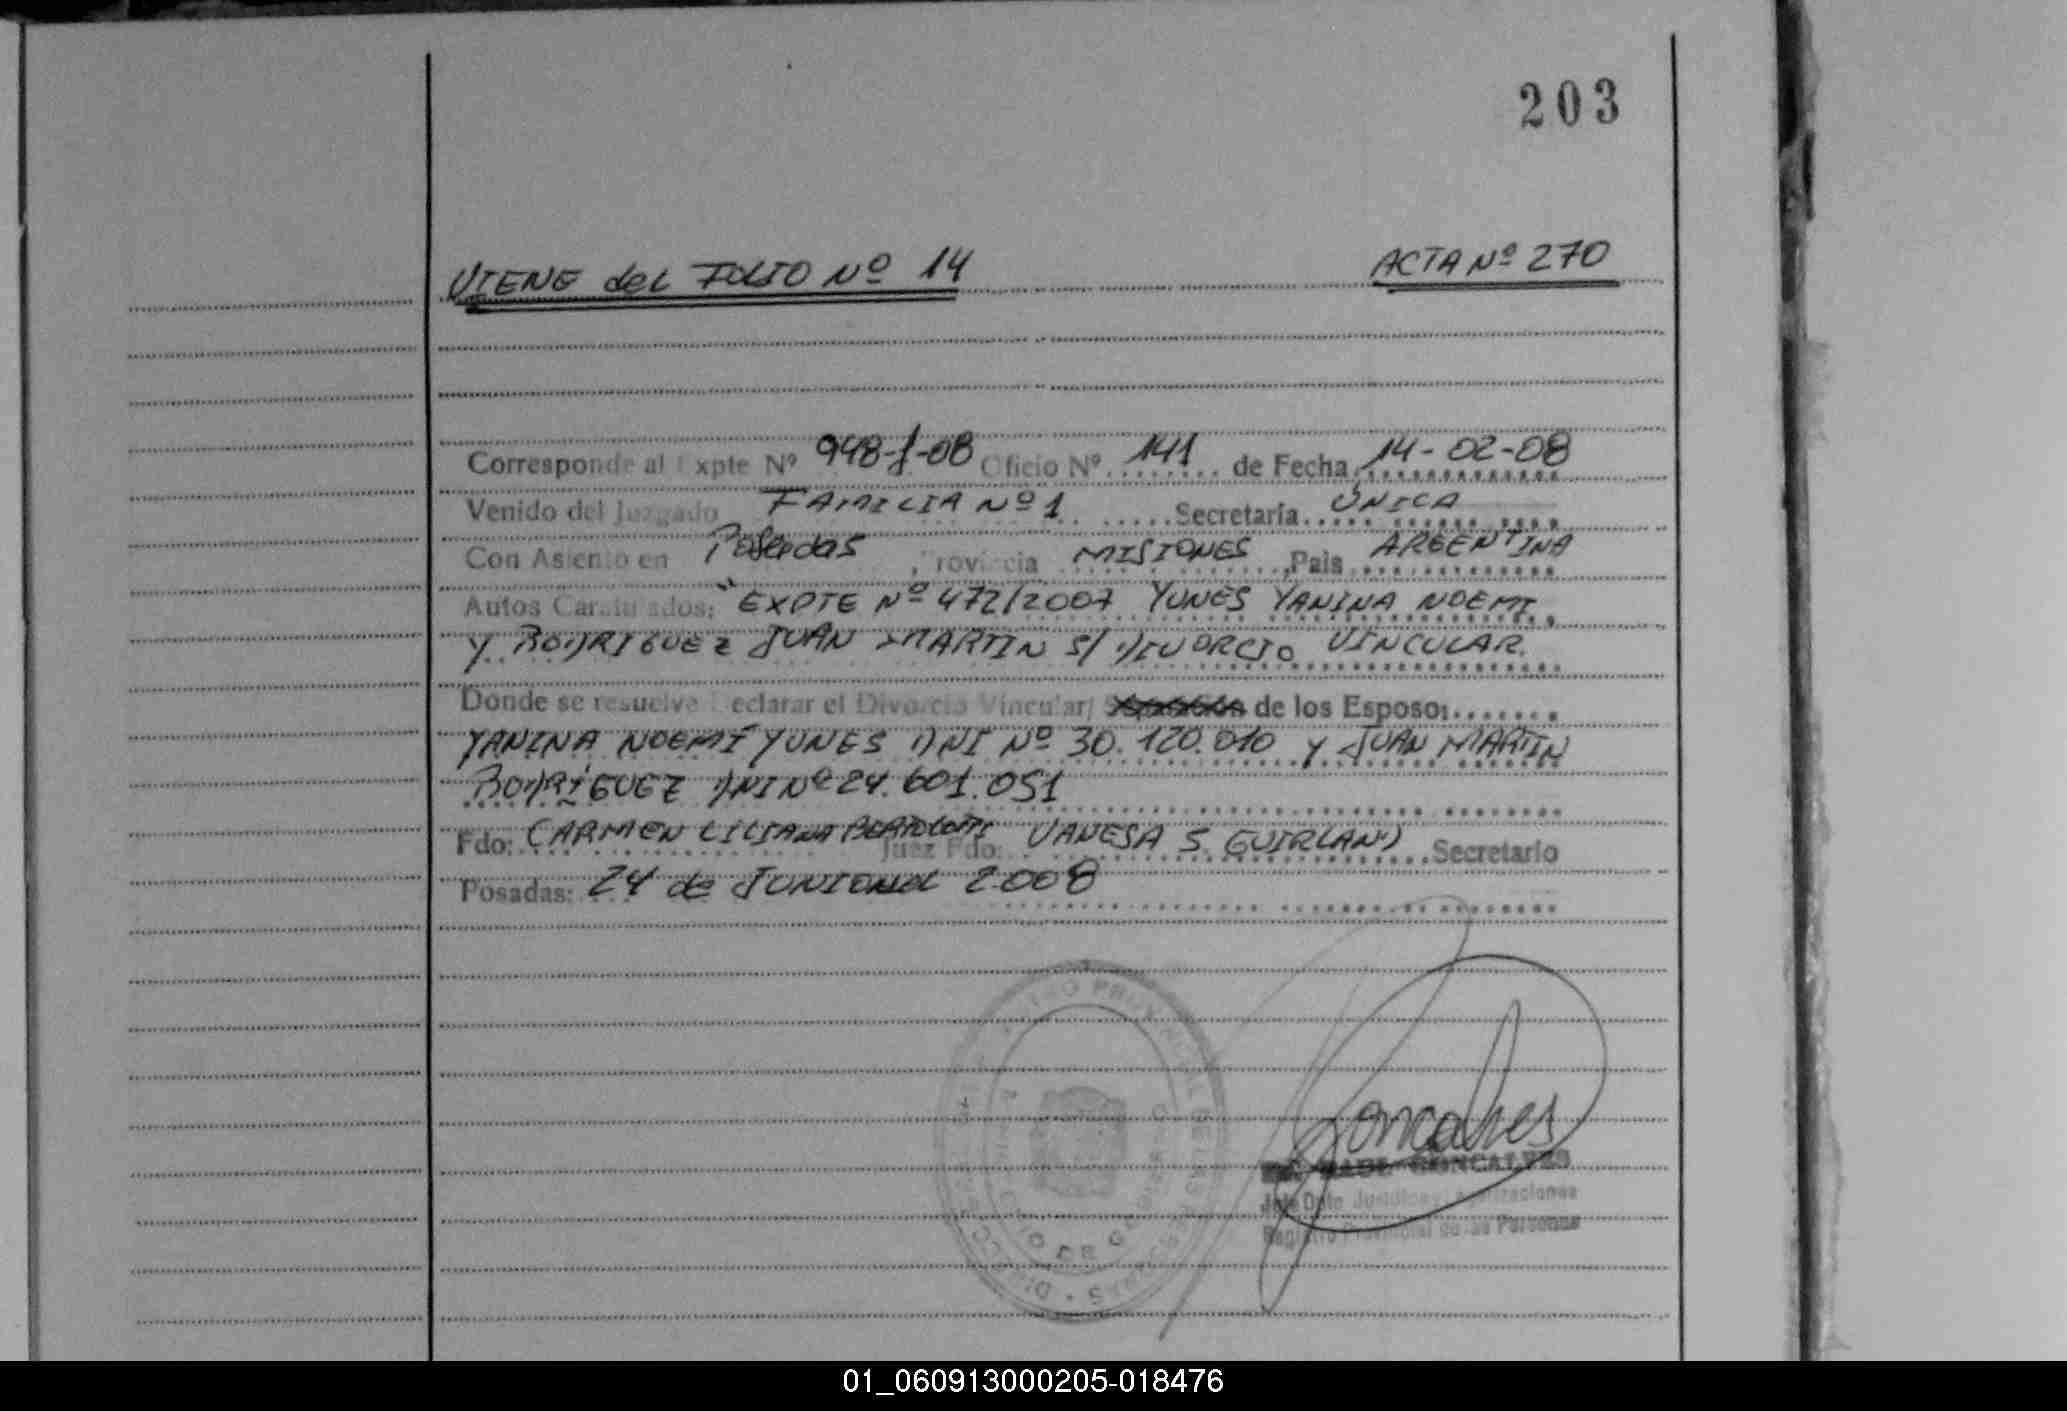 203
VIENE del FOLIO Nº 14 ACTA Nº 270
Corresponde al Expte Nº 948-f-08 Oficio Nº 141 de Fecha 14-02-08
Venido del Juzgado FAMILIA Nº 1 Secretaria ÚNICA
Con Asiento en Posadas, Provincia MISIONES, Pais ARGENTINA
Autos Caratulados: "EXPTE Nº 472/2007 YUNES YANINA NOEMI
Y RODRIGUEZ JUAN MARTIN S/ DIVORCIO VINCULAR.
Donde se resuelve Declarar el Divorcio Vincular/ de los Esposo:
YANINA NOEMÍ YUNES DNI Nº 30.120.010 y JUAN MARTIN
RODRÍGUEZ DNI Nº 24.601.051
Fdo: CARMEN LILIANA BERTOLOTTI Juez Fdo: VANESA S GUIRLAND Secretario
Posadas: 24 de JUNIO del 2008
Goncalves
RAUL GONCALVES
Jefe Dpto Juridico y
Registro Provincial de las Personas
01_060913000205-018476